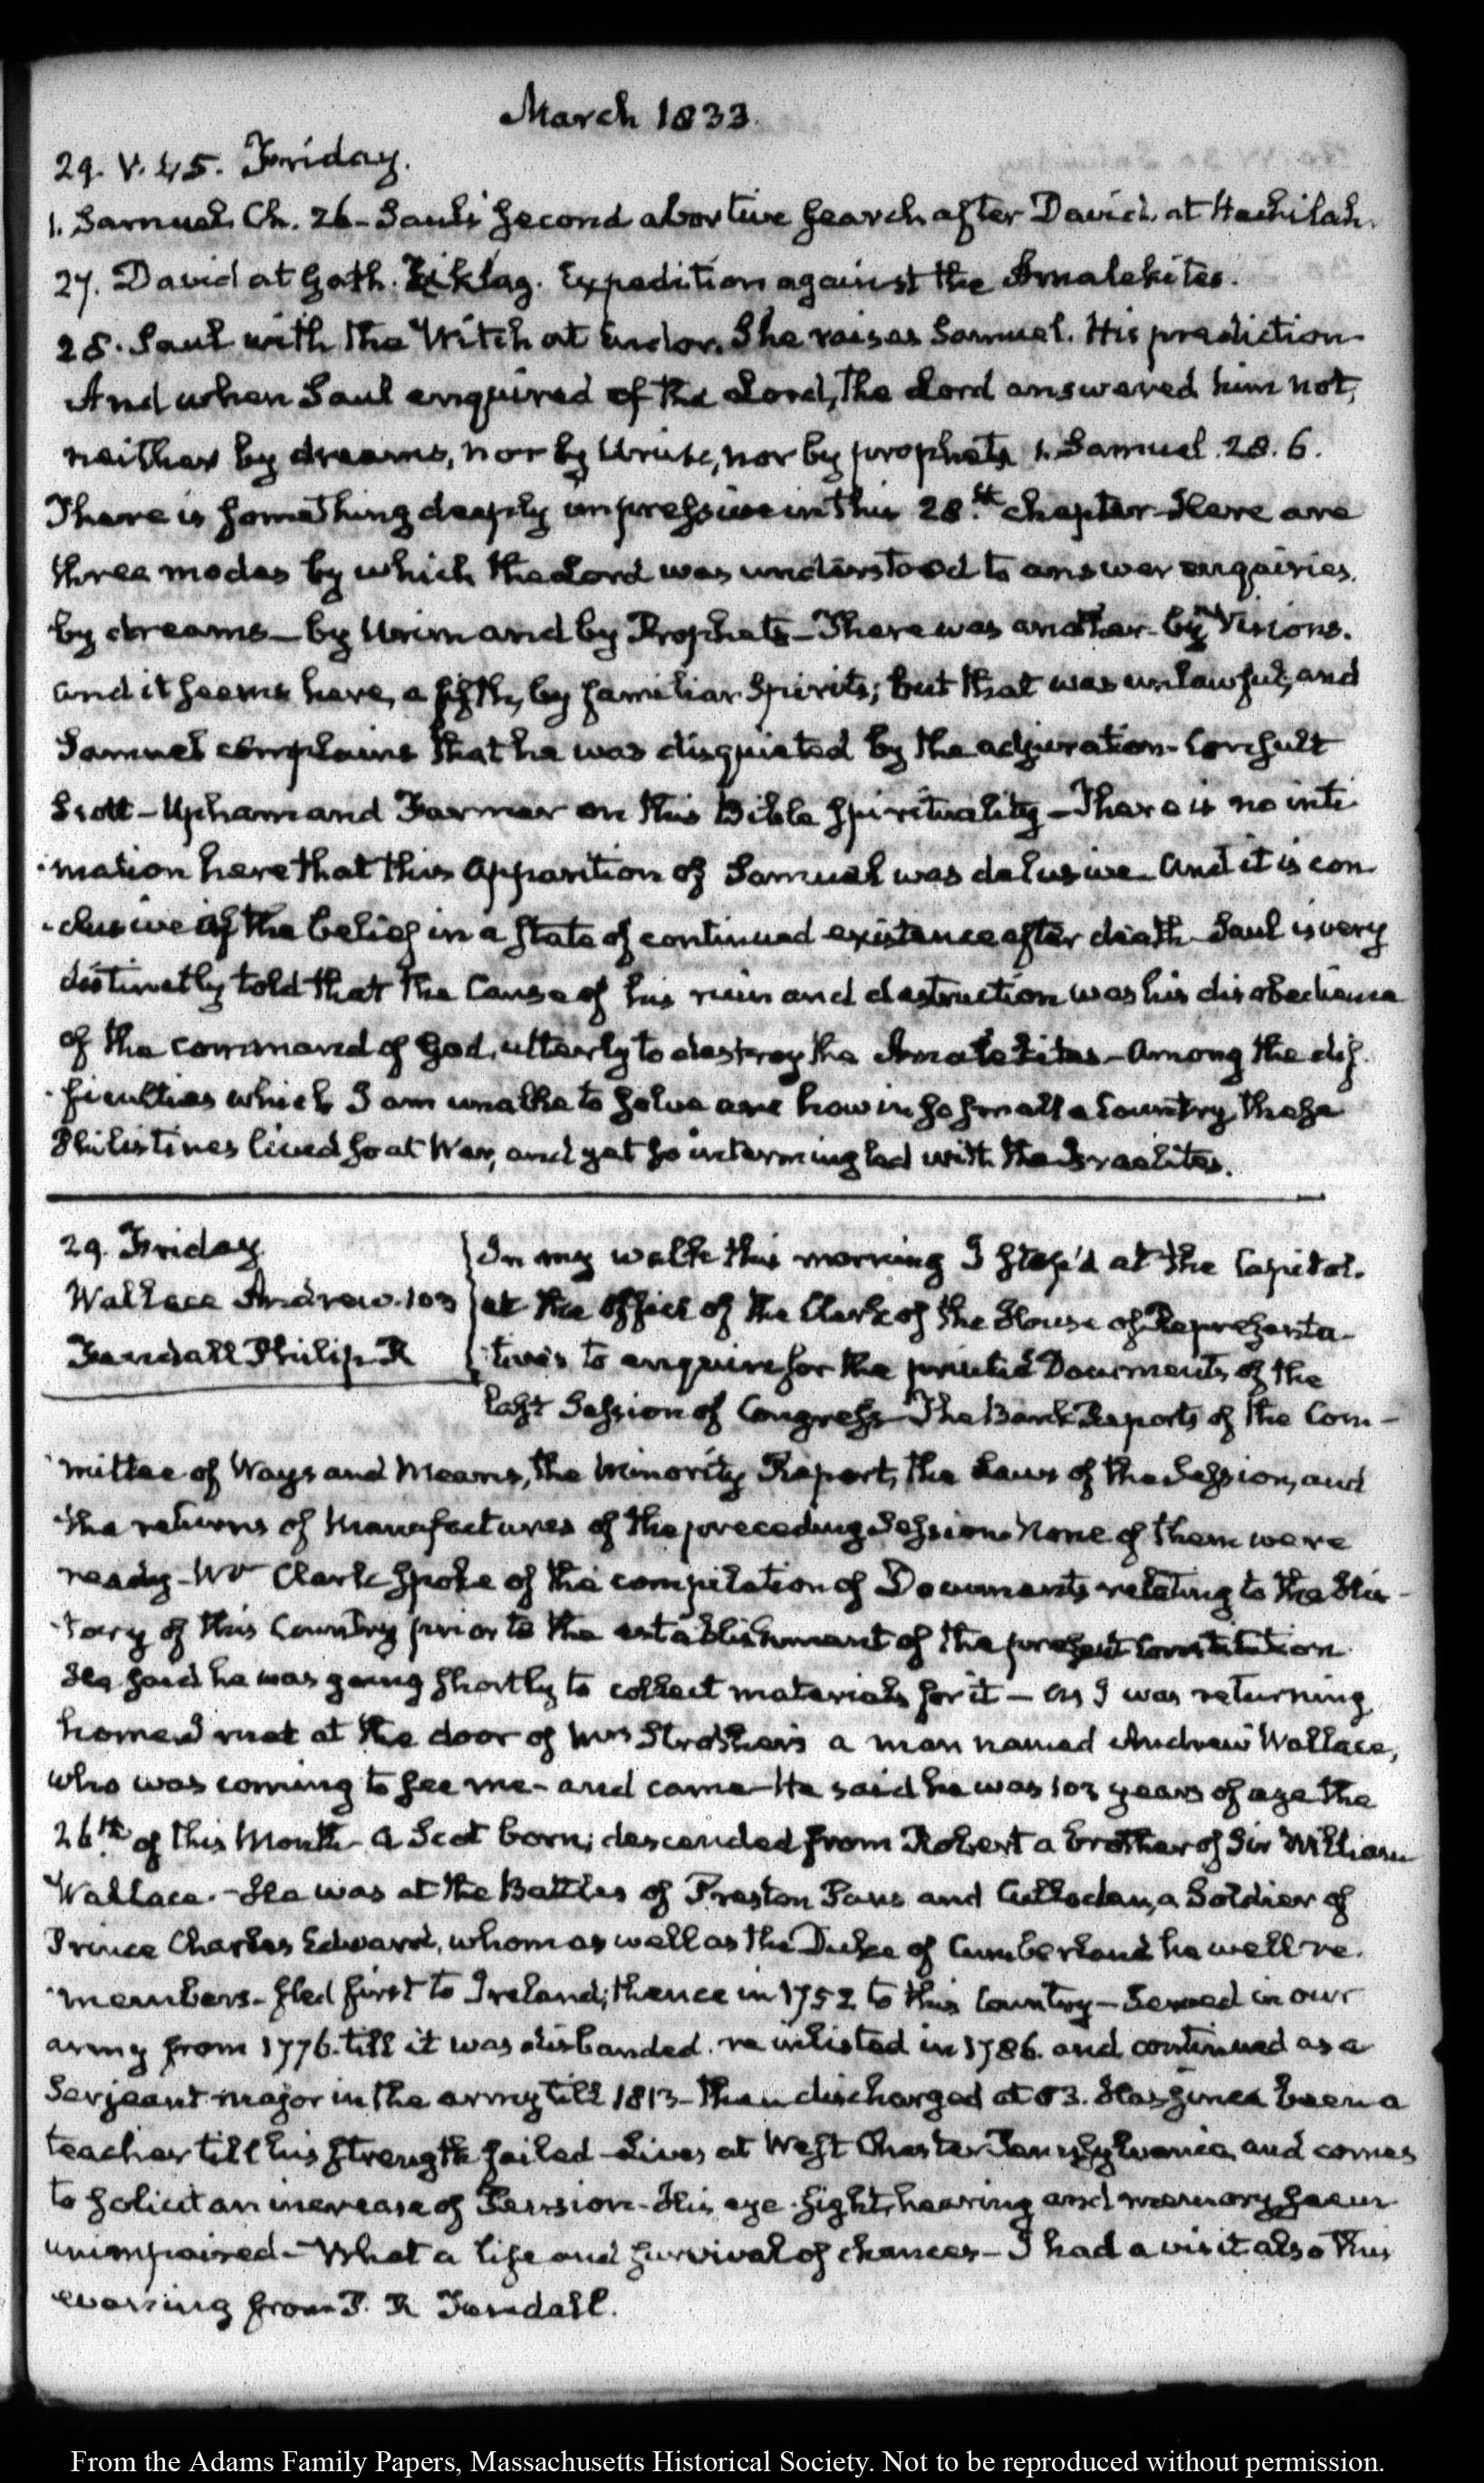 March 1833.
29. V. 45. Friday.
1. Samuel. Ch. 26 - Saul's second abortive search after David. at Hachilah.
27. David at Gath. Ziklag. Expedition against the Amalekites.
28. Saul with the Witch at Endor. She raises Samuel. His prediction
And when Saul enquired of the Lord, the Lord answered him not,
neither by dreams, nor by Urim, nor by prophets 1. Samuel. 28. 6.
There is something deeply impressive in this 28.th chapter - Here are
three modes by which the Lord was understood to answer enquiries.
by dreams - by Urim and by Prophets - There was another - by Visions.
and it seems here, a fifth, by familiar Spirits; but that was unlawful, and
Samuel complains that he was disquieted by the adjuration - Consult
Scott - Upham and Farmer on this Bible spirituality - There is no inti
mation here that this apparition of Samuel was delusive - And it is con
clusive of the belief in a state of continued existence after death - Saul is very
distinctly told that the Cause of his ruin and destruction was his disobedience
of the command of God, utterly to destroy the Amalekites - Among the dif-
ficulties which I am unable to solve are how in so small a Country, these
Philistines lived so at War, and yet so intermingled with the Israelites.
29. Friday
Wallace Andrew. 103
Fendall Philip R
In my walk this morning I stop'd at the Capitol.
at the Office of the Clerk of the House of Representa-
tives to enquire for the printed Documents of the
last Session of Congress - The Bank Reports of the Com-
mittee of Ways and Means, the Minority Report, the Laws of the Session, and
the returns of Manufactures of the preceding Session - None of them were
ready - Mr Clark spoke of the compilation of Documents relating to the His-
tory of this Country prior to the establishment of the present Constitution
He said he was going shortly to collect materials for it - As I was returning
home I met at the door of Mrs Strother's a man named Andrew Wallace,
who was coming to see me - and came - He said he was 103 years of age the
26th of this Month - a Scot born; descended from Robert a brother of Sir William
Wallace. - He was at the Battles of Preston Pans and Culloden, a Soldier of
Prince Charles Edward, whom as well as the Duke of Cumberland he well re-
members - fled first to Ireland; thence in 1752 to this Country - Served in our
army from 1776. till it was disbanded. re inlisted in 1786. and continued as a
Serjeant major in the army till 1813 - then discharged at 83. Has since been a
teacher till his strength failed - Lives at West Chester Pennsylvania, and comes
to solicit an increase of Pension - His eye-sight, hearing and memory seem
unimpaired - What a life and survival of chances - I had a visit also this
evening from P. R Fendall.
From the Adams Family Papers, Massachusetts Historical Society. Not to be reproduced without permission.